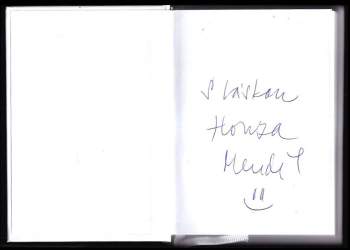 S láskou
Honza
Mendł